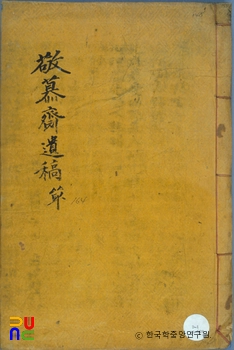 敬慕齋遺稿 單
ⓒ 한국학중앙연구원